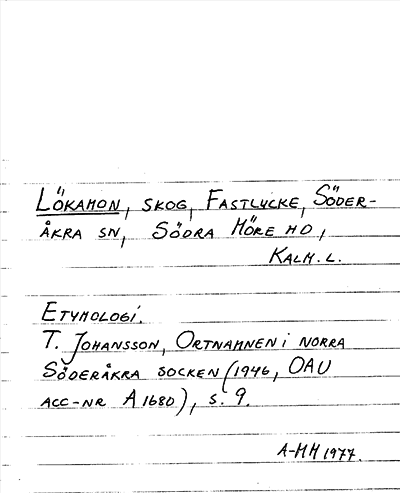 LÖKAMON, SKOG, FASTLYCKE, SÖDER-
ÅKRA SN, SÖDRA MÖRE HD,
KALM. L.
ETYMOLOGI.
T. JOHANSSON, ORTNAMNEN I NORRA
SÖDERÅKRA SOCKEN (1946, OAU
ACC-NR A 1680), S. 9.
A-MH 1977.